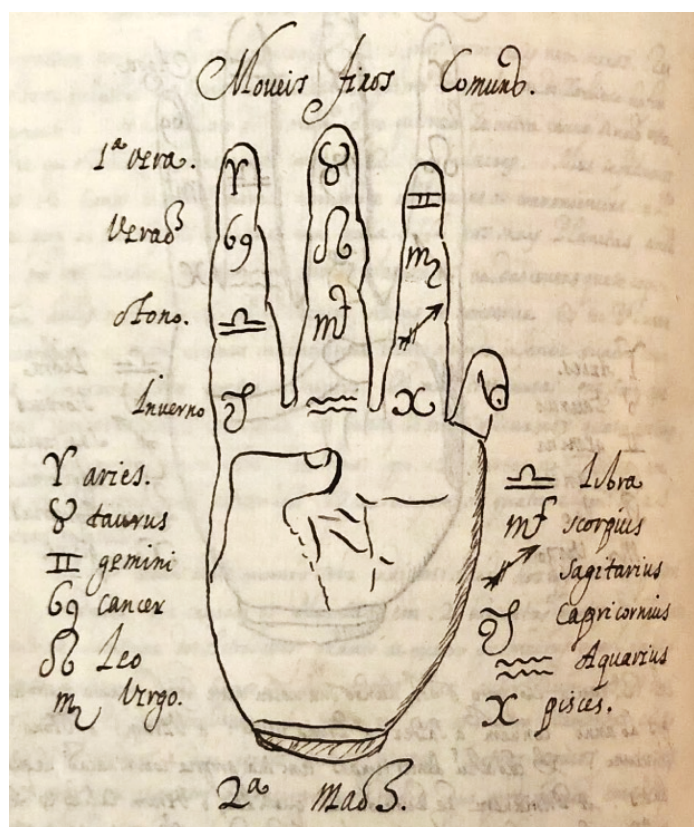 Moveis fixos Comuns.
1ª vera. ♈ ♉ ♊
♋ ♌ ♍
otono. ♎ ♏ ♐
Inverno ♑ ♒ ♓
♈ aries.
♉ taurus
♊ gemini
♋ cancer
♌ Leo
♍ Virgo.
♎ Libra
♏ scorpius
♐ Sagitarius
♑ Capricornius
♒ Aquarius
♓ pisces.
2ª